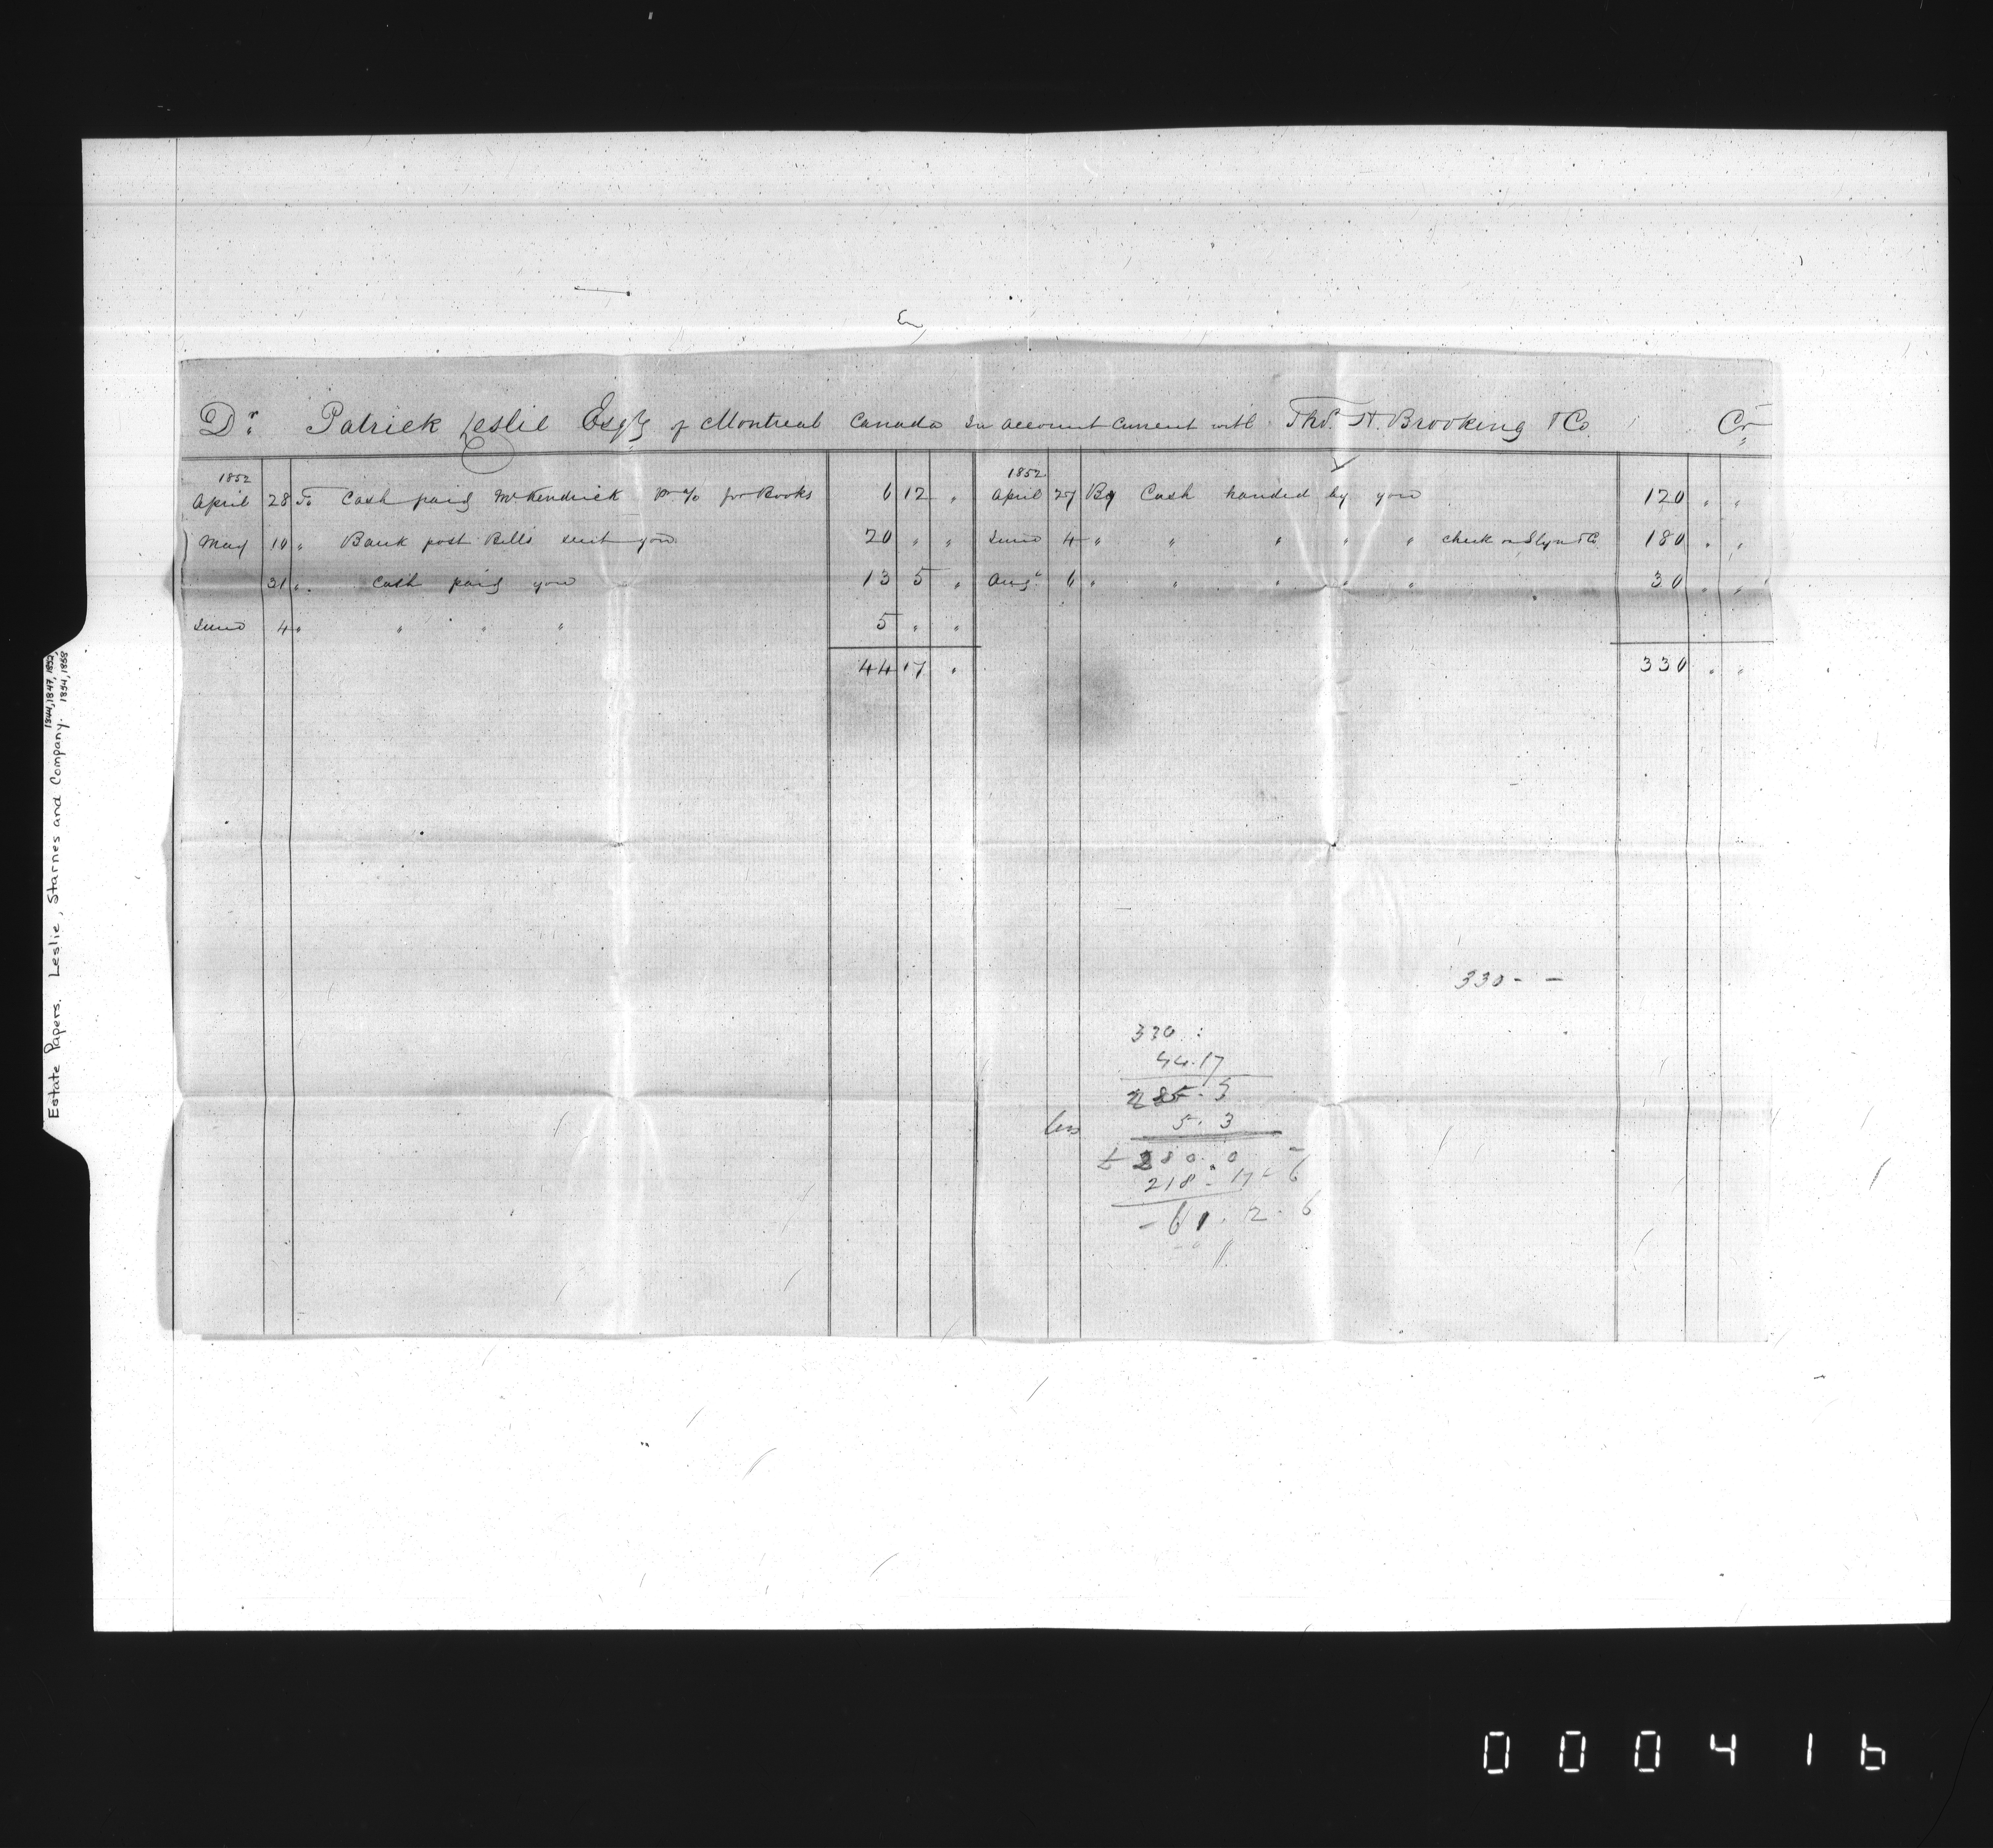 Dr. Patrick Leslie Esqre of Montreal Canada In account current with Thos. H. Brooking & Co. Cr.
1852
April 28 To Cash paid McKendrick pr a/c for Books 6 12 "
May 10 " Bank post Bills sent you 20 " "
31 " Cash paid you 13 5 "
June 4 " " " " 5 " "
44 17 "
1852
April 27 By Cash handed by you 120 " "
June 4 " " " " " check on & Co. 180 " "
Augt 6 " " " " " 30 " "
330 " "
330 - -
330 :
44.17
285.3
less 5.3
£ 280.0 -
218. 17 - 6
- 61. 2. 6
Estate Papers. Leslie, Starnes and Company. 1844, 1847, 1852, 1854, 1858
000416